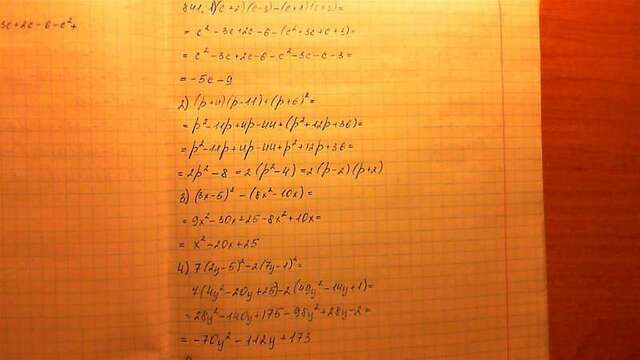 3c+2c-6-c²+
841. 1) (c+2)(c-3)-(c+1)(c+3)=
= c²-3c+2c-6-(c²+3c+c+3)=
= c²-3c+2c-6-c²-3c-c-3=
= -5c-9
2) (p+4)(p-11)+(p+6)²=
= p²-11p+4p-44+(p²+12p+36)=
= p²-11p+4p-44+p²+12p+36=
= 2p²-8 = 2(p²-4) = 2(p-2)(p+2)
3) (3x-5)²-(8x²-10x)=
= 9x²-30x+25-8x²+10x=
= x²-20x+25
4) 7(2y-5)²-2(7y-1)²=
7(4y²-20y+25)-2(49y²-14y+1)=
= 28y²-140y+175-98y²+28y-2=
= -70y²-112y+173